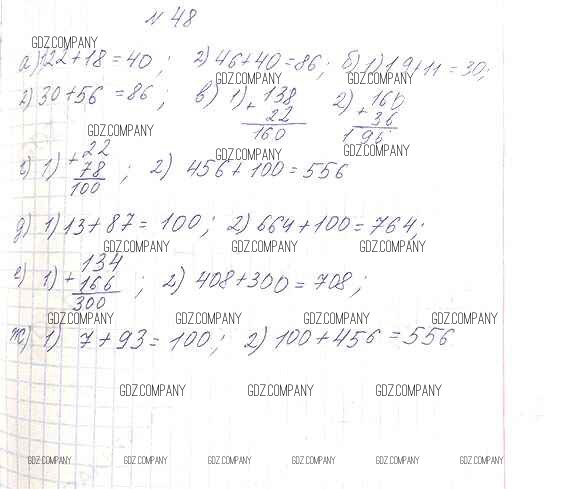 N 48
GDZ.COMPANY
а) 1) 22+18=40; 2) 46+40=86; б) 1) 19+11=30;
GDZ.COMPANY GDZ.COMPANY
2) 30+56=86; в) 1) +138 2) +160
22 36
160 196
GDZ.COMPANY GDZ.COMPANY GDZ.COMPANY
г) 1) +22 ; 2) 456+100=556
78
100
д) 1) 13+87=100; 2) 664+100=764;
GDZ.COMPANY GDZ.COMPANY GDZ.COMPANY
е) 1) +134 ; 2) 408+300=708;
166
300
GDZ.COMPANY GDZ.COMPANY GDZ.COMPANY GDZ.COMPANY
ж) 1) 7+93=100; 2) 100+456=556
GDZ.COMPANY GDZ.COMPANY GDZ.COMPANY
GDZ.COMPANY GDZ.COMPANY GDZ.COMPANY GDZ.COMPANY GDZ.COMPANY GDZ.COMPANY